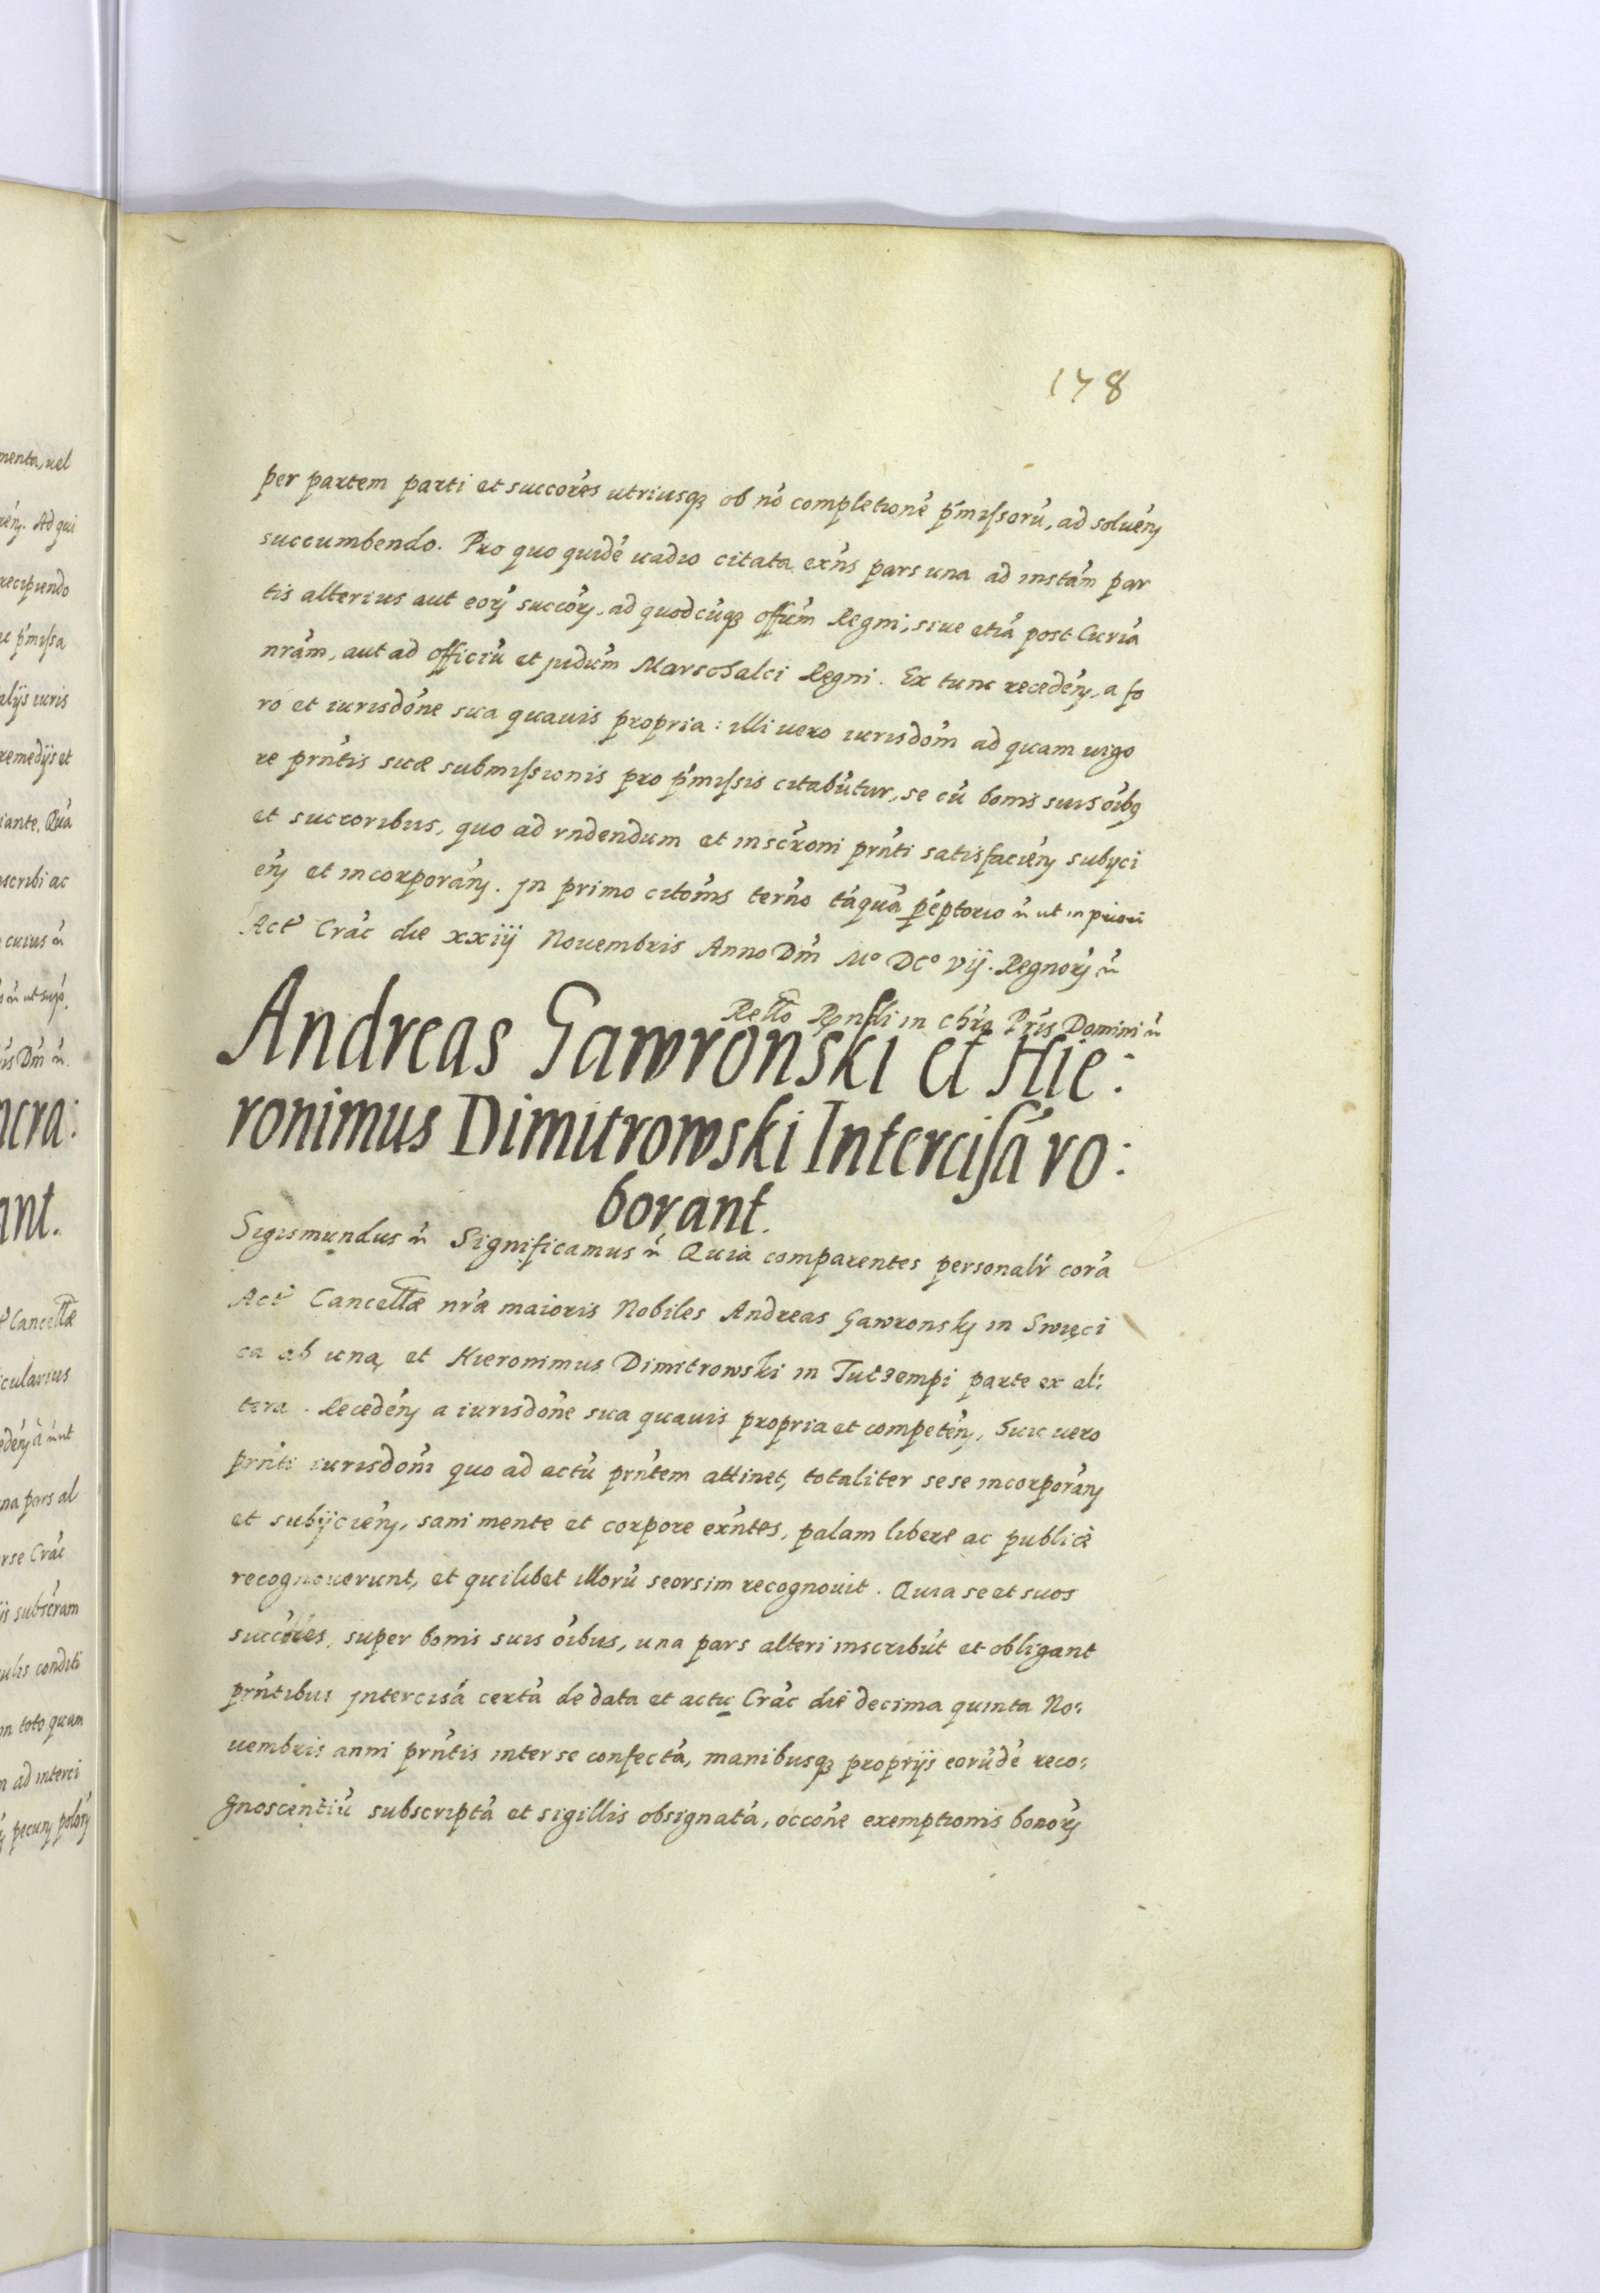 178
per partem parti et succores utriusqȝ ob nō completionē pʹmissorū, ad soluēn
succumbendo. Pro quo quidē uadio citata exn̄s pars una ad instām par
tis alterius aut eorꝫ succorꝫ, ad quodcūqȝ offūm Regni, siue etiā post Curiā
nrām, aut ad officiū et judūm Marschalci Regni. Ex tunc recedēn, a fo
ro et iurisdōne sua quauis propria: illi uero iurisdōm ad quam uigo
re prn̄tis suæ submissionis pro pʹmissis citabūtur, se cū bonis suis oībꝫ
et succoribus, quo ad rndendum et inscrōni prn̄ti satisfaciēn subyci
ēn et incorporān. Jn primo citōnis termō tāquā pēptorio ñ ut in priori
Act Crāc die xxiij Nouembris Anno Dm̄ Mº DCº vij. Regnorꝫ ñ
Relltō Rēndi in chrō Prīs Domini ñ
Andreas Gawronski et Hie:
ronimus Dimitrowski Intercisā ro:
borant.
Sigismundus ñ Significamus ñ Quia comparentes personalr̄ corā
Act Cancellæ nrāe maioris Nobiles Andreas Gawronskj in Swięci
ca ab una, et Hieronimus Dimitrowski in Tučzempi parte ex al:
tera. Recedēn a iurisdōne sua quauis propria et competēn, huic uero
prn̄ti iurisdōni quo ad actū prn̄tem attinet, totaliter sese incorporān
et subijciēn, sani mente et corpore exn̄tes, palam libere ac publicè
recognouerunt, et quilibet illorū seorsim recognouit. Quia se et suos
succōres, super bonis suis oībus, una pars alteri inscribūt et obligant
prn̄tibus jntercisā certā de data et actu Crāc die decima quinta No:
uembris anni prn̄tis inter se confectā, manibusqȝ proprijs eorūdē reco:
gnoscentiū subscriptā et sigillis obsignatā, occōne exemptionis bonorꝫ